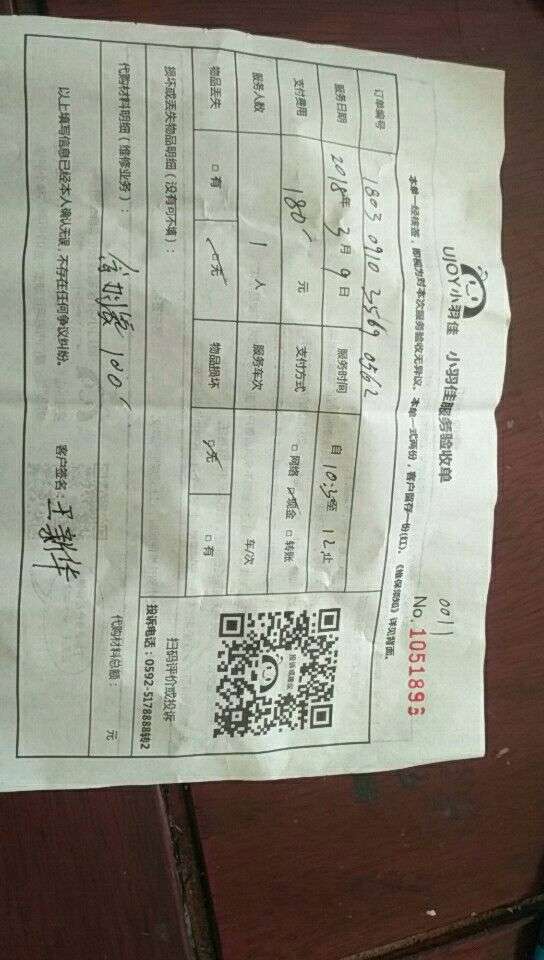 UJOY小羽佳 小羽佳服务验收单
0011
No. 1051893
本单一经核签，即视为对本次服务验收无异议，本单一式两份，客户留存一份(红)。《维保须知》详见背面。
订单编号 1803 0910 3569 0562
服务日期 2018年3月9日 服务时间 自10:30至12止
支付费用 180 元 支付方式 □网络 ☑现金 □转账
服务人数 1 人 服务车次 车/次
物品丢失 □有 ☑无 物品损坏 ☑无 □有
损坏或丢失物品明细（没有可不填）：
扫码评价或投诉
投诉电话：0592-5178888转2
代购材料明细（维修业务）： 100 代购材料总额： 元
以上填写信息已经本人确认无误，不存在任何争议纠纷。 客户签名：王新华